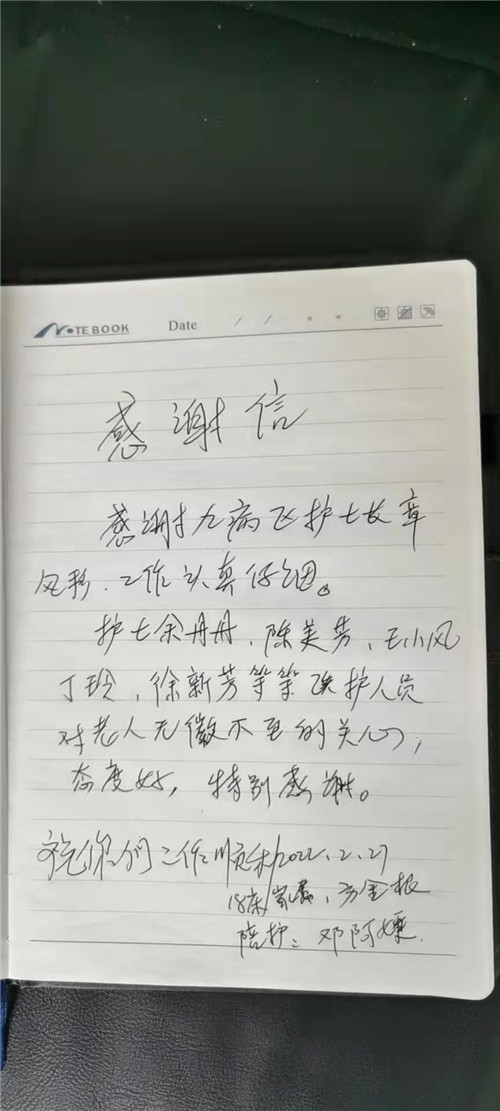 NOTEBOOK Date / /
感谢信
感谢九病区护士长章
凤彩、工作认真仔细。
护士余丹丹、陈美芳、王小凤
丁玲,徐新芳等等医护人员
对老人无微不至的关心,
态度好,特别感谢。
祝你们工作顺利2022.2.27
18床家属、方金根
陪护:邓阿姨.